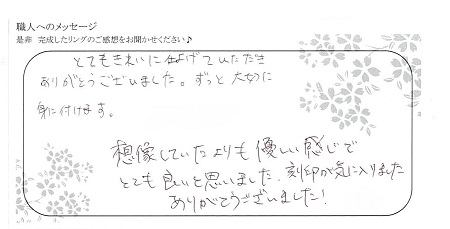 職人へのメッセージ
是非 完成したリングのご感想をお聞かせください♪
とてもきれいに仕上げていただき
ありがとうございました。ずっと大切に
身に付けます。
想像していたよりも優しい感じで
とても良いと思いました。刻印が気に入りました
ありがとうございました!